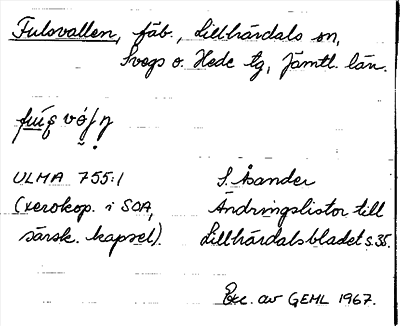 Fulsvallen, fäb., Lillhärdals sn,
Svegs o. Hede tg, Jämtl. län.
ULMA 755:1 S. Åsander
(xerokop. i SOA, Ändringslistor till
särsk. kapsel). Lillhärdalsbladet s. 35.
Exc. av GEHL 1967.